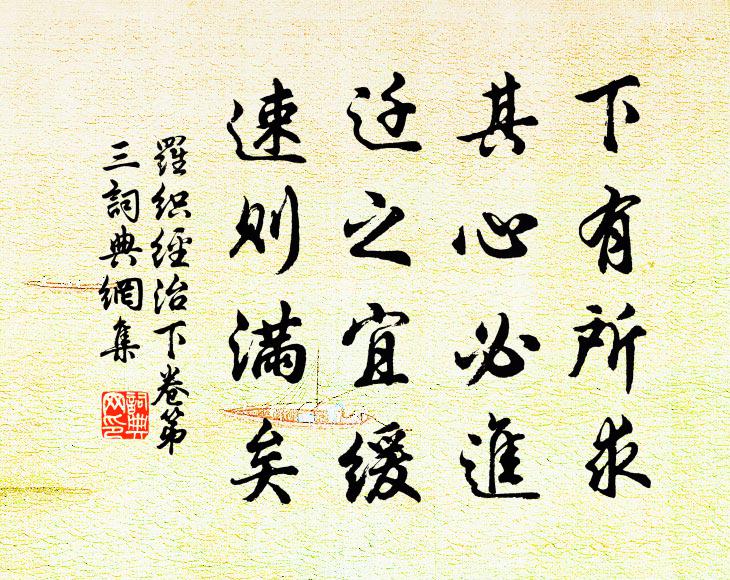 下有所求
其心必進
迁之宜緩
速則滿矣
羅織經治下卷第
三詞典網集
詞典網印